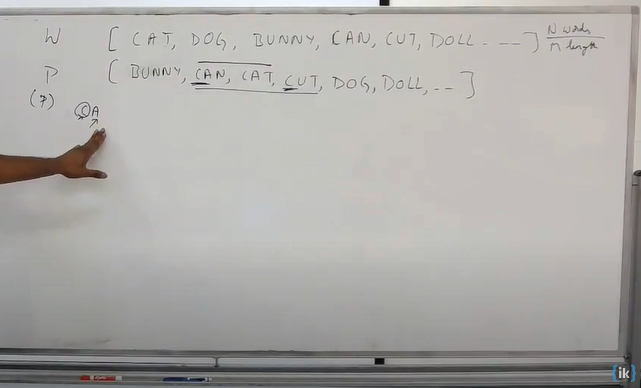 W [ CAT, DOG, BUNNY, CAN, CUT, DOLL - - - ] N words
M length
P [ BUNNY, CAN, CAT, CUT, DOG, DOLL, -- ]
(7) CA
ik